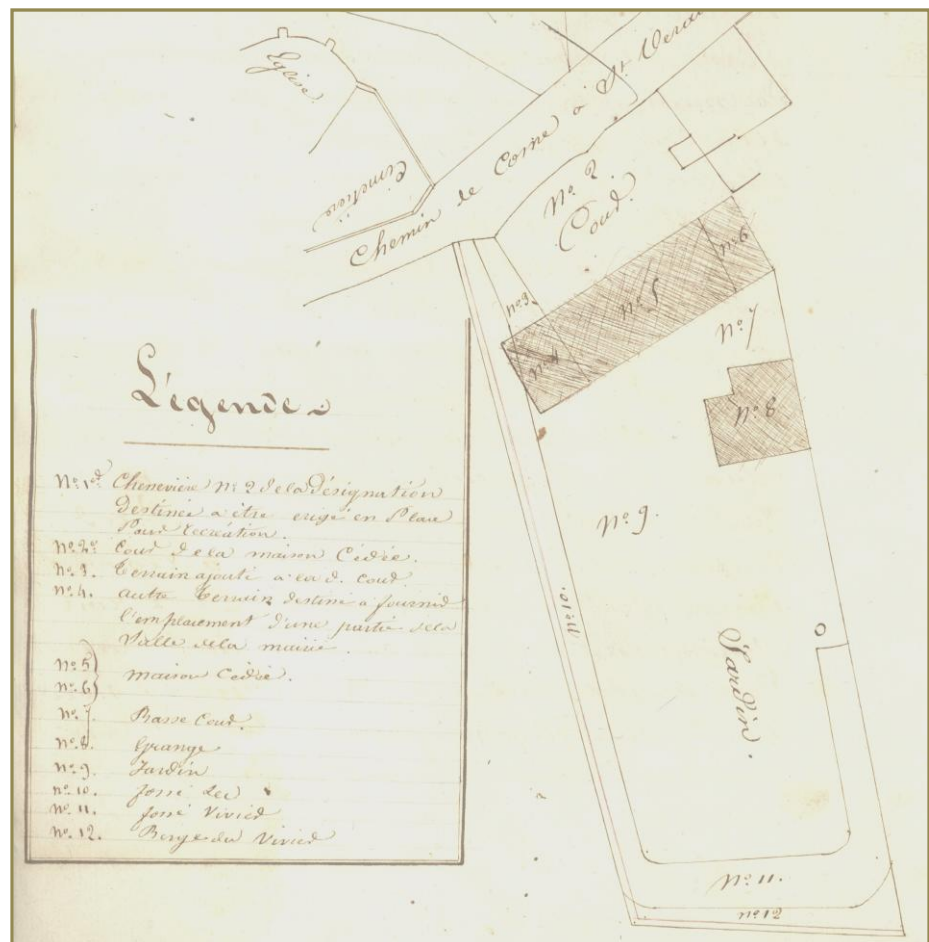 Eglise.
Cimetière
Chemin de Cosne à St Verain
No 2.
Cour.
No 3.
No 4
No 5
No 6
No 7
No 8
No 9.
No 10.
Jardin.
No 11.
No 12
Légende
No 1er Chenevière No 2 de la Désignation
destinée a être erigé en Place
Pour recréation.
No 2e Cour de la maison Cédée.
No 3. terrain ajouté a la d. Cour
No 4. autre terrain destiné a fournir
l'emplacement d'une partie de la
Salle de la mairie.
No 5
No 6 maison Cédée.
No 7 Basse Cour.
No 8. Grange
No 9. Jardin
No 10. fossé Sec
No 11. fossé Vivier
No 12. Berge du Vivier